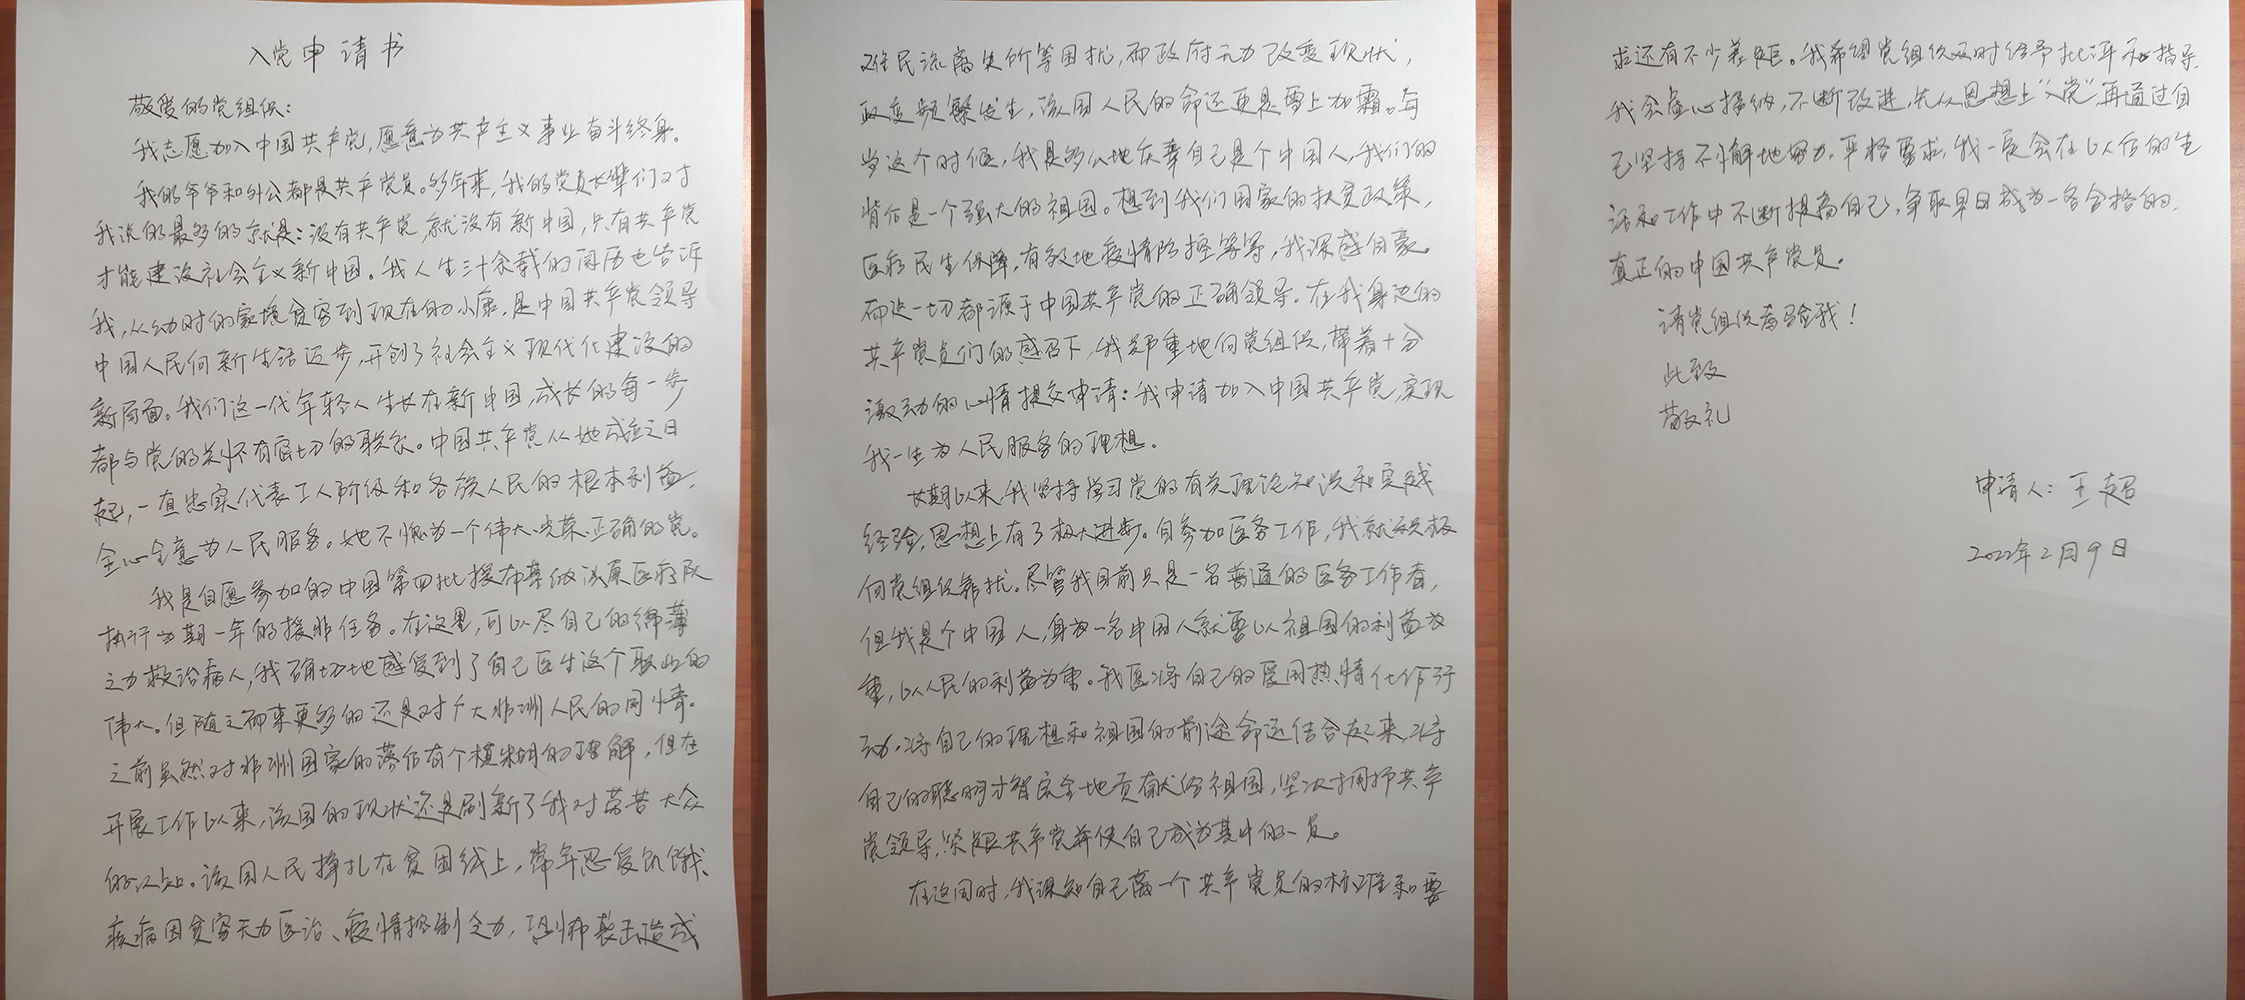 入党申请书
敬爱的党组织：
我志愿加入中国共产党，愿意为共产主义事业奋斗终身。
我的爷爷和外公都是共产党员。多年来，我的党员长辈们对
我说的最多的就是：没有共产党，就没有新中国，只有共产党
才能建设社会主义新中国。我人生三十余载的阅历也告诉
我，从幼时的家境贫穷到现在的小康，是中国共产党领导
中国人民向新生活迈步，开创了社会主义现代化建设的
新局面。我们这一代年轻人生长在新中国，成长的每一步
都与党的关怀有密切的联系。中国共产党从她成立之日
起，一直忠实代表工人阶级和各族人民的根本利益，
全心全意为人民服务。她不愧为一个伟大、光荣、正确的党。
我是自愿参加的中国第四批援布基纳法索医疗队
执行为期一年的援非任务。在这里，可以尽自己的绵薄
之力救治病人，我确切地感受到了自己医生这个职业的
伟大。但随之而来更多的还是对广大非洲人民的同情。
之前虽然对非洲国家的落后有个模糊的理解，但在
开展工作以来，该国的现状还是刷新了我对劳苦大众
的认知。该国人民挣扎在贫困线上，常年忍受饥饿、
疾病因贫穷无力医治、疫情控制乏力，恐怖袭击造成
难民流离失所等困扰，而政府无力改变现状，
政变频繁发生，该国人民的命运更是雪上加霜。每
当这个时候，我是多么地庆幸自己是个中国人，我们的
背后是一个强大的祖国。想到我们国家的扶贫政策，
医疗民生保障，有效地疫情防控等等，我深感自豪。
而这一切都源于中国共产党的正确领导。在我身边的
共产党员们的感召下，我郑重地向党组织，带着十分
激动的心情提交申请：我申请加入中国共产党，实现
我一生为人民服务的理想。
长期以来，我坚持学习党的有关理论知识和实践
经验，思想上有了极大进步。自参加医务工作，我就积极
向党组织靠拢。尽管我目前只是一名普通的医务工作者，
但我是个中国人，身为一名中国人就要以祖国的利益为
重，以人民的利益为重。我愿将自己的爱国热情化作行
动，将自己的理想和祖国的前途命运结合起来，将
自己的聪明才智完全地贡献给祖国，坚决拥护共产
党领导，紧跟共产党并使自己成为其中的一员。
在这同时，我深知自己离一个共产党员的标准和要
求还有不少差距。我希望党组织及时给予批评和指导，
我会虚心接纳，不断改进，先从思想上“入党”，再通过自
己坚持不懈地努力，严格要求，我一定会在以后的生
活和工作中不断提高自己，争取早日成为一名合格的，
真正的中国共产党员。
请党组织考验我！
此致
敬礼
申请人：王超
2022年2月9日